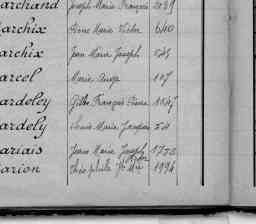 archand Joseph Marie François 2039
archix Pierre Marie Victor 640
archix Jean Marie Joseph 541
arcel Marie Ange 107
ardeley Gilles François Pierre 1047
ardely Louis Marie Jacques 54
ariais Jean Marie Joseph 1750
arion Théophile 1994